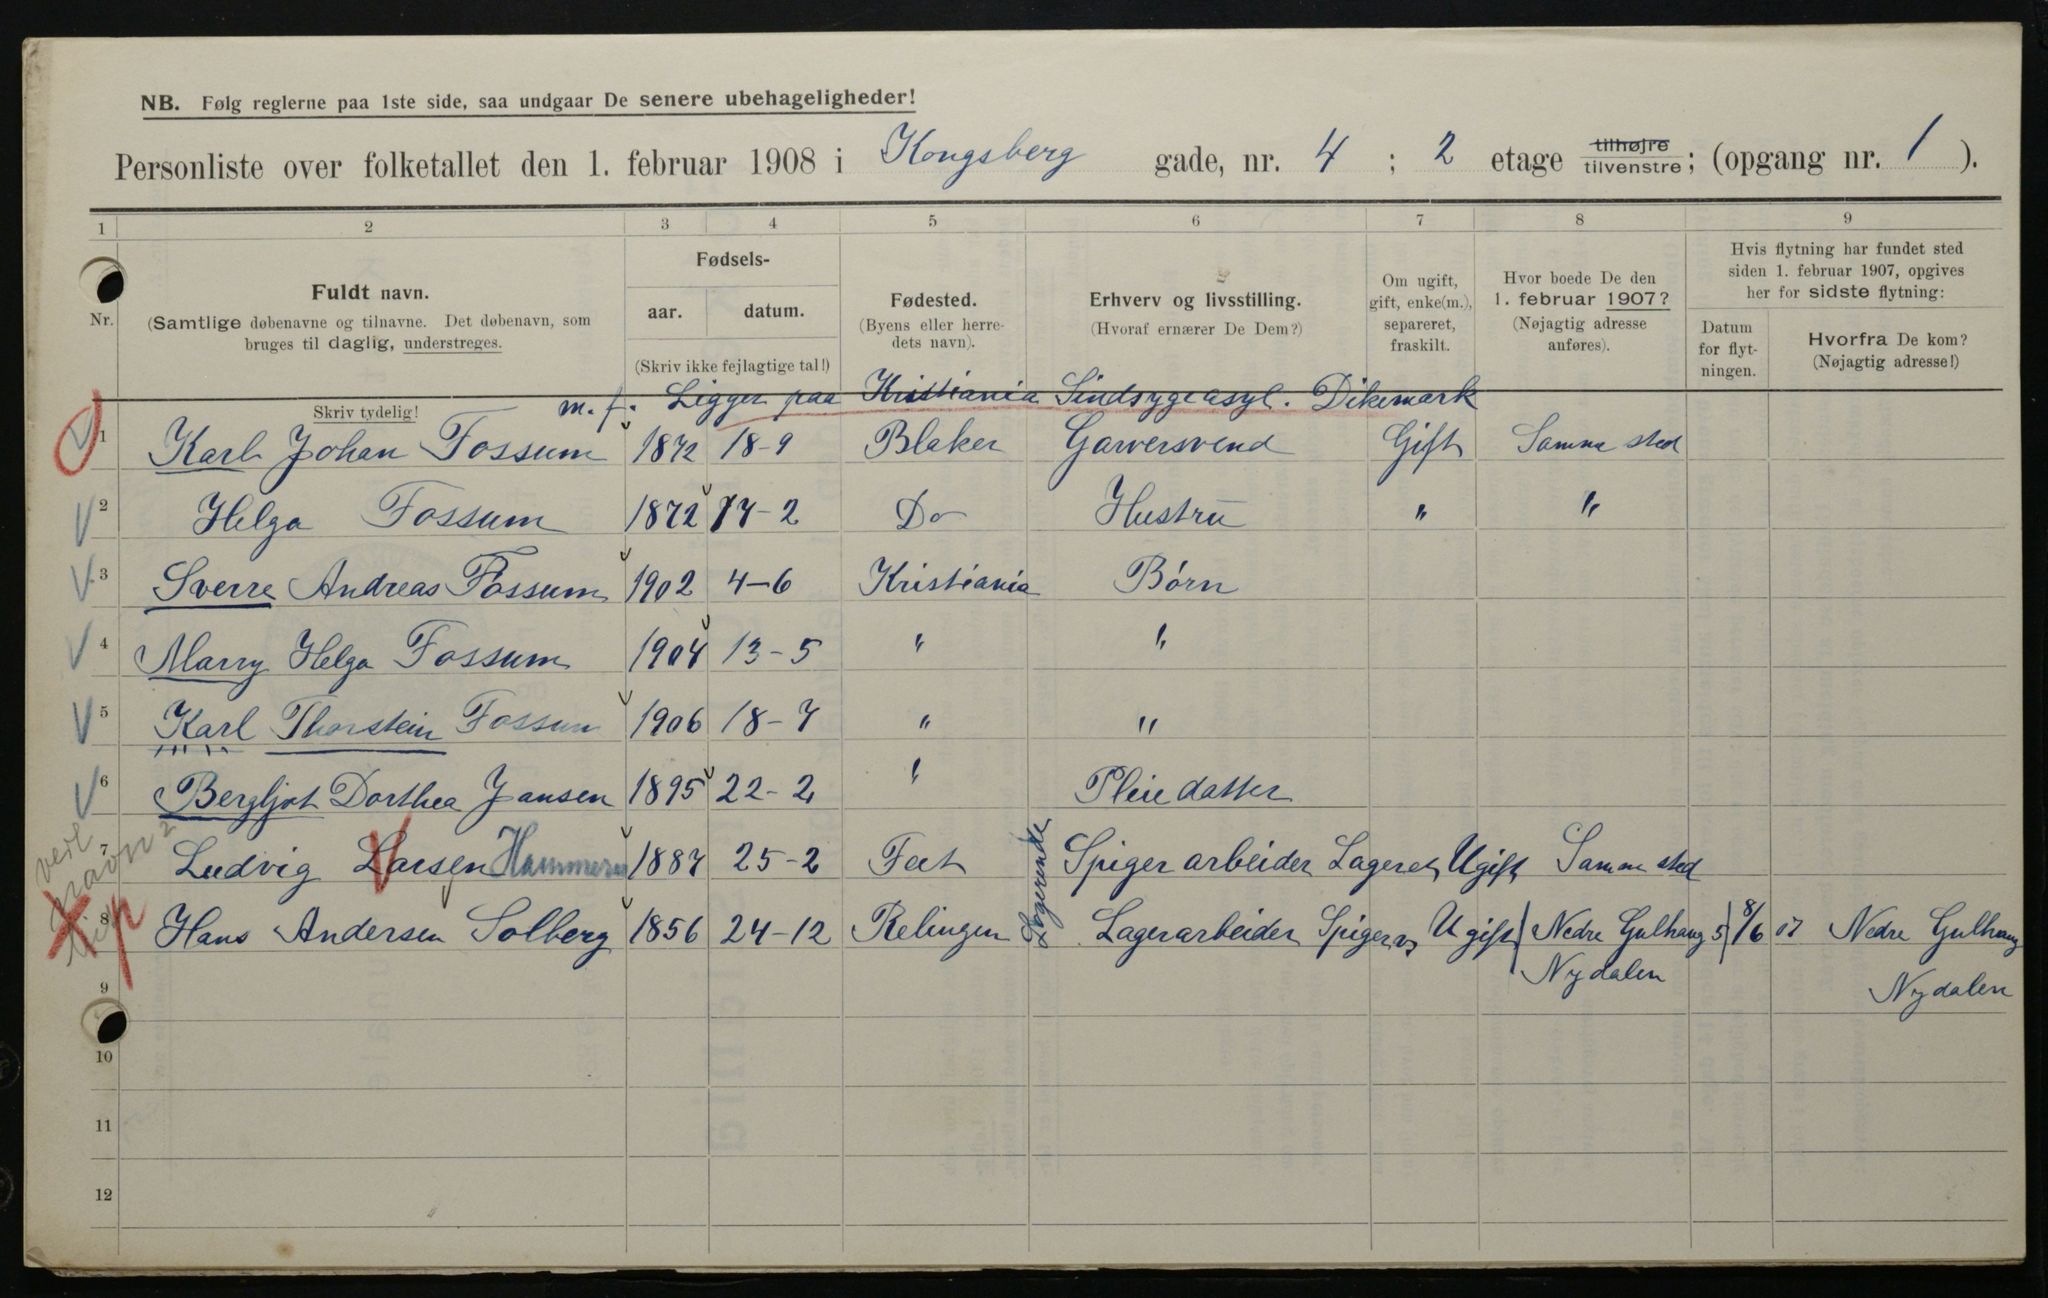 NB. Følg reglerne paa 1ste side, saa undgaar De senere ubehageligheder!
Personliste over folketallet den 1. februar 1908 i Kongsberg gade, nr. 4 ; 2 etage tilhøjre tilvenstre; (opgang nr. 1 ).
1 2 3 4 5 6 7 8 9
Nr.
Fuldt navn.
(Samtlige døbenavne og tilnavne. Det døbenavn, som
bruges til daglig, understreges.
Fødsels-
aar. datum.
(Skriv ikke fejlagtige tal!)
Fødested.
(Byens eller herre-
dets navn).
Erhverv og livsstilling.
(Hvoraf ernærer De Dem?)
Om ugift,
gift, enke(m.),
separeret,
fraskilt.
Hvor boede De den
1. februar 1907?
(Nøjagtig adresse
anføres).
Hvis flytning har fundet sted
siden 1. februar 1907, opgives
her for sidste flytning:
Datum
for flyt-
ningen.
Hvorfra De kom?
(Nøjagtig adresse!)
Skriv tydelig!
m. f. Ligger paa Kristiania Sindsygeasyl. Dikemark
1 Karl Johan Fossum 1872 18-9 Blaker Garversvend Gift Samme sted
2 Helga Fossum 1872 17-2 Do Hustru " "
3 Sverre Andreas Fossum 1902 4-6 Kristiania Børn
4 Marry Helga Fossum 1904 13-5 " "
5 Karl Thorstein Fossum 1906 18-7 " "
6 Bergljot Dorthea Jansen 1895 22-2 " Pleiedatter
7 Ludvig Larsen Hammeren 1887 25-2 Feet Spigerarbeider Ugift Samme sted
Logerende
8 Hans Andersen Solberg 1856 24-12 Relingen Lagerarbeider Ugift Nedre Gulhaug 5 8/6 07 Nedre Gulhaug
Nydalen Nydalen
9
10
11
12